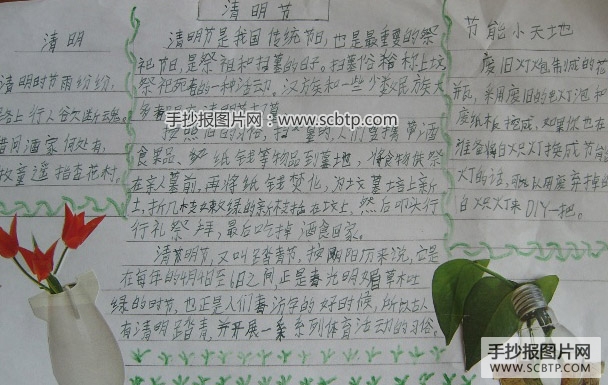 清明节
清明
清明时节雨纷纷,
路上行人欲断魂。
借问酒家何处有,
牧童遥指杏花村。
清明节是我国传统节日,也是最重要的祭
祀节日,是祭祖和扫墓的日子。扫墓俗称上坟
祭祀死者的一种活动。汉族和一些少数民族大
多都是在清明节扫墓。
按照旧的习俗,扫墓时,人们要携带酒
食果品、纸钱等物品到墓地,将食物供祭
在亲人墓前,再将纸钱焚化,为坟墓培上新
土,折几枝嫩绿的新枝插在坟上,然后叩头行
行礼祭拜,最后吃掉酒食回家。
清明节,又叫踏青节,按阳历来说,它是
在每年的4月4日至6日之间,正是春光明媚草木吐
绿的时节,也正是人们春游的好时候,所以古人
有清明踏青,并开展一系列体育活动的习俗。
节能小天地
废旧灯组成的花
瓶,采用废旧的电灯泡和
废纸板搭成,如果你也在
准备将白炽灯换成节能
灯的话,可以用废弃掉的
白炽灯来DIY一把。
手抄报图片网:www.scbtp.com
手抄报图片网
WWW.SCBTP.COM